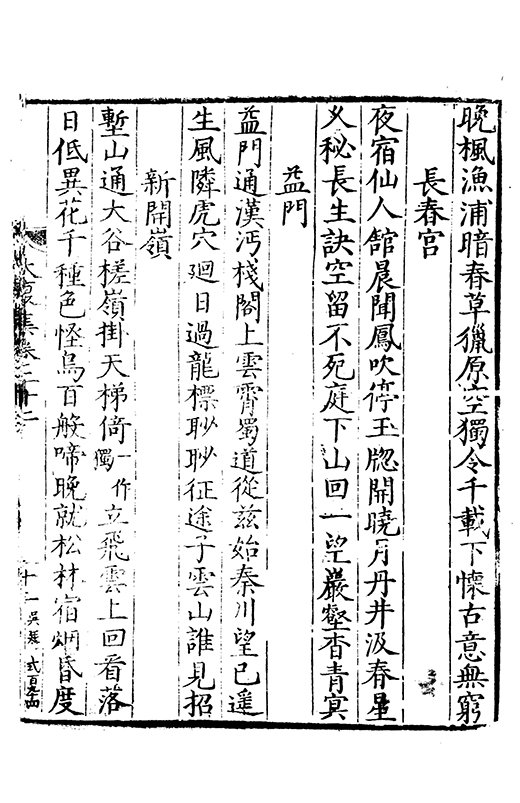 晚楓漁浦暗春草獵原空獨令千載下懷古意無窮
長春宮
夜宿仙人舘晨聞鳳吹停玉牎開曉月丹井汲春星
久秘長生訣空留不死庭下山回一望巖壑杳青㝠
益門
益門通漢沔棧閣上雲霄蜀道從兹始秦川望已遥
生風隣虎穴廻日過龍標眇眇征途子雲山誰見招
新開嶺
塹山通大谷槎嶺掛天梯倚一作獨立飛雲上回看落
日低異花千種色怪鳥百般啼晚就松林宿烟昏度
大復集卷二十二
十二